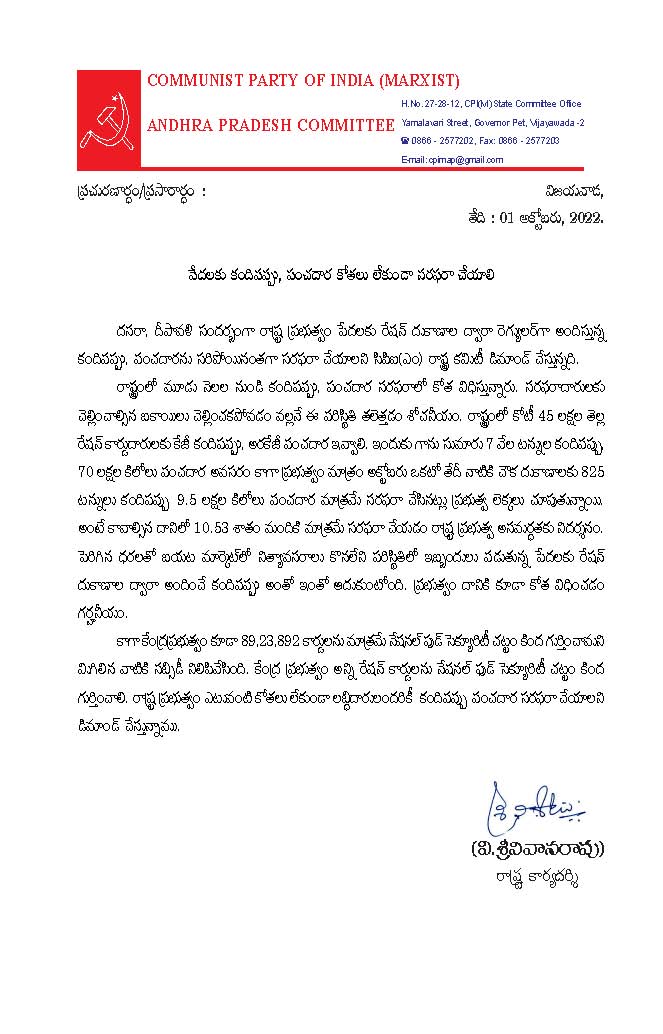 COMMUNIST PARTY OF INDIA (MARXIST)
ANDHRA PRADESH COMMITTEE
H.No. 27-28-12, CPI(M) State Committee Office
Yamalavari Street, Governor Pet, Vijayawada -2
☎ 0866 - 2577202, Fax: 0866 - 2577203
E-mail: cpimap@gmail.com
ప్రచురణార్థం/ప్రసారార్థం :
విజయవాడ,
తేది : 01 అక్టోబరు, 2022.
పేదలకు కందిపప్పు, పంచదార కోతలు లేకుండా సరఫరా చేయాలి
దసరా, దీపావళి సందర్భంగా రాష్ట్ర ప్రభుత్వం పేదలకు రేషన్ దుకాణాల ద్వారా రెగ్యులర్‌గా అందిస్తున్న
కందిపప్పు, పంచదారను సరిపోయినంతగా సరఫరా చేయాలని సిపిఐ(ఎం) రాష్ట్ర కమిటీ డిమాండ్ చేస్తున్నది.
రాష్ట్రంలో మూడు నెలల నుండి కందిపప్పు, పంచదార సరఫరాలో కోత విధిస్తున్నారు. సరఫరాదారులకు
చెల్లించాల్సిన బకాయిలు చెల్లించకపోవడం వల్లనే ఈ పరిస్థితి తలెత్తడం శోచనీయం. రాష్ట్రంలో కోటీ 45 లక్షల తెల్ల
రేషన్ కార్డుదారులకు కేజీ కందిపప్పు, అరకేజీ పంచదార ఇవ్వాలి. ఇందుకు గాను సుమారు 7 వేల టన్నుల కందిపప్పు,
70 లక్షల కిలోలు పంచదార అవసరం కాగా ప్రభుత్వం మాత్రం అక్టోబరు ఒకటో తేదీ నాటికి చౌక దుకాణాలకు 825
టన్నులు కందిపప్పు 9.5 లక్షల కిలోలు పంచదార మాత్రమే సరఫరా చేసినట్లు ప్రభుత్వ లెక్కలు చూపుతున్నాయి.
అంటే కావాల్సిన దానిలో 10.53 శాతం మందికి మాత్రమే సరఫరా చేయడం రాష్ట్ర ప్రభుత్వ అసమర్ధతకు నిదర్శనం.
పెరిగిన ధరలతో బయట మార్కెట్‌లో నిత్యావసరాలు కొనలేని పరిస్థితిలో ఇబ్బందులు పడుతున్న పేదలకు రేషన్
దుకాణాల ద్వారా అందించే కందిపప్పు అంతో ఇంతో ఆదుకుంటోంది. ప్రభుత్వం దానికి కూడా కోత విధించడం
గర్హనీయం.
కాగా కేంద్రప్రభుత్వం కూడా 89,23,892 కార్డులను మాత్రమే నేషనల్ ఫుడ్ సెక్యూరిటీ చట్టం కింద గుర్తించామని
మిగిలిన వాటికి సబ్సిడీ నిలిపివేసింది. కేంద్ర ప్రభుత్వం అన్ని రేషన్ కార్డులను నేషనల్ ఫుడ్ సెక్యూరిటీ చట్టం కింద
గుర్తించాలి. రాష్ట్ర ప్రభుత్వం ఎటువంటి కోతలు లేకుండా లబ్ధిదారులందరికీ కందిపప్పు పంచదార సరఫరా చేయాలని
డిమాండ్ చేస్తున్నాము.
(వి.శ్రీనివాసరావు)
రాష్ట్ర కార్యదర్శి